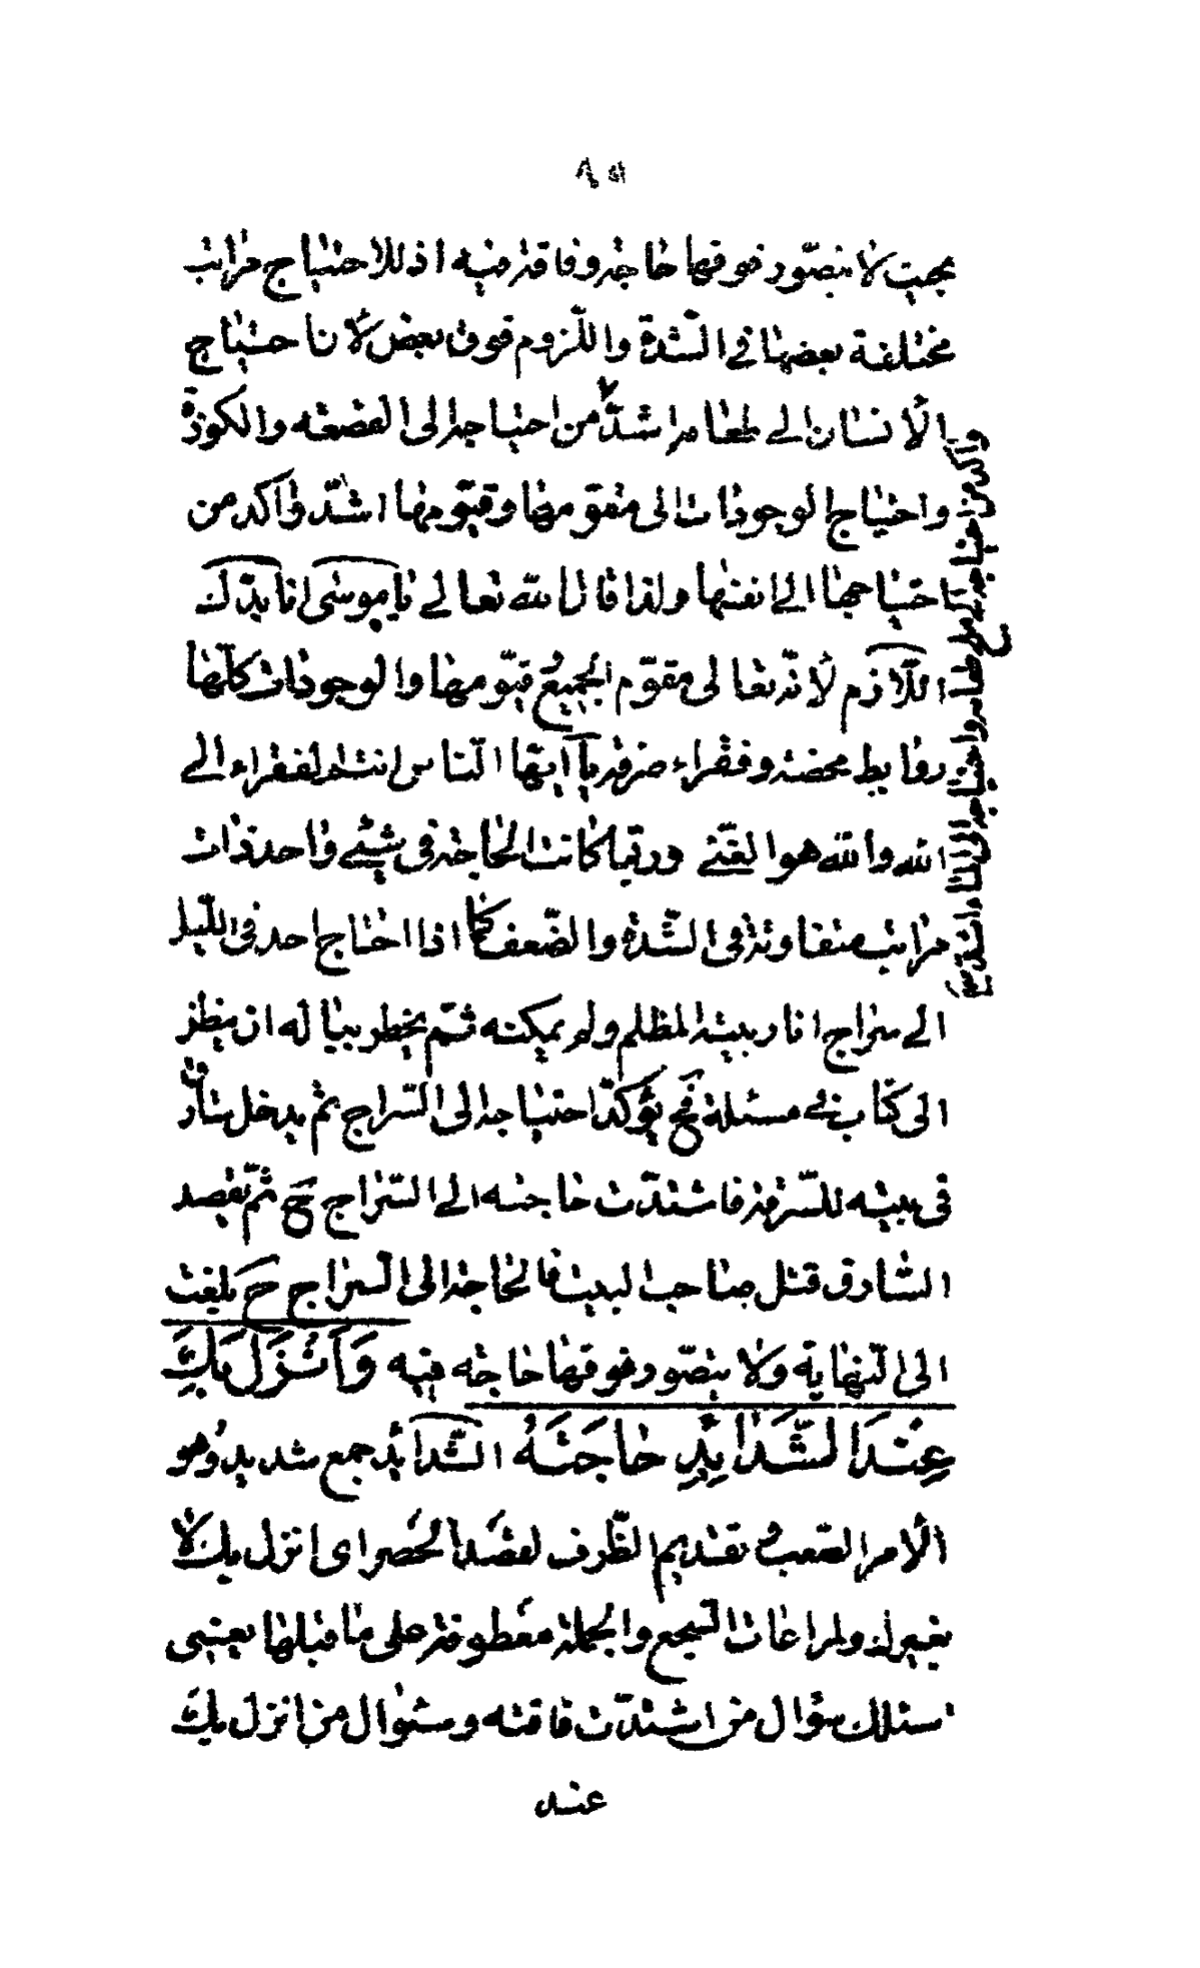 ٨٥
بحيث لا يتصور فوقها حاجة وفاقة فيه اذ للاحتياج مراتب
مختلفة بعضها في الشدة واللزوم فوق بعض لان احتياج
الانسان الى طعامه اشدّ من احتياجه الى القصعة والكوزة
واحتياج الوجودات الى مقومها وقيّومها اشدّ واكد من
احتياجها الى انفسها ولذا قال الله تعالى يا موسى انا بدّك
اللّازم لانّه تعالى مقوّم الجميع قيّومها والوجودات كلّها
روابط محضة وفقراء صرفة يا ايّها النّاس انتم الفقراء الى
الله والله هو الغنّي وربّما كانت الحاجة في شيئ واحد ذات
مراتب متفاوتة في الشّدة والضّعف كما اذا احتاج احد في اللّيل
الى سراج انار بيته المظلم ولم يمكنه ثمّ يخطر بباله ان ينظر
الى كتاب في مسئلة فح يؤكدّ احتياجه الى السّراج ثم يدخل سارق
في بيته للسّرقة فاشتدّت حاجته الى السّراج ح ثمّ يقصد
السّارق قتل صاحب البيت فالحاجة الى السراج ح بلغت
الى النّهاية ولا يتصّور فوقها حاجته فيه وَاَنْزَلَ بِكَ
عِنْدَ الشَّدَائِدِ حَاجَتَهُ الشّدائد جمع شديد وهو
الامر الصّعب وتقديم الظّرف لقصد الحصر اى انزل بك لا
بغيرك ولمراعات السّجع والجملة معطوفة على ما قبلها يعنى
اسئلك سؤال من اشتدّت فاقته وسؤال من انزل بك
عند
واكد من احتياجه الى طعامه واحتياجه الى الماء اشدّ